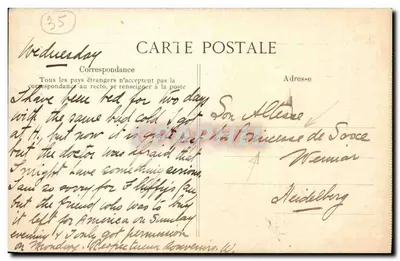 35
Wednesday
CARTE POSTALE
Correspondance
Tous les pays étrangers n'acceptent pas la
correspondance au recto, se renseigner à la poste
Adresse
I have been bed for two days
with the same bad cold I got
at, but now it is
but the doctor was afraid that
I might have something serious,
I am so sorry for
but the friend who was to buy
it left for America on Sunday
evening & I only got permission
on Monday. Respectueux souvenirs.
Son Altesse
la Princesse de Saxe
Weimar
Heidelberg